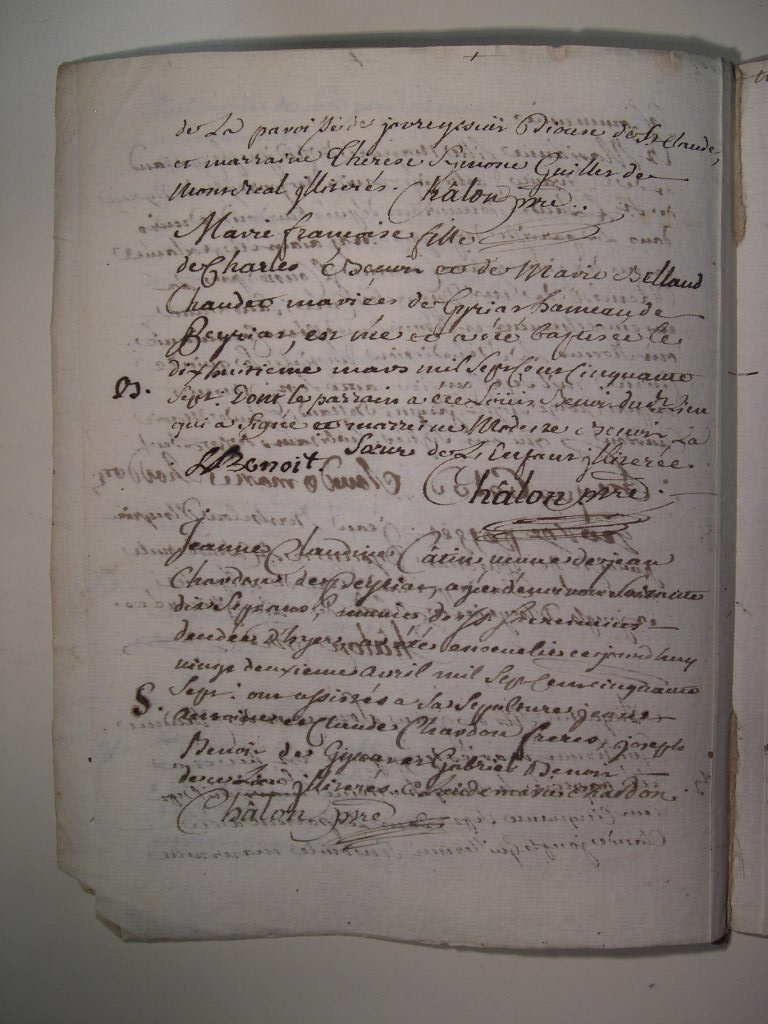 de La paroisse de joreyssiar Diocese de St Claude,
et marraine Therese Simone Guiller de
Montreal jllitérés. Châlon prre.
Marie francoise fille
de Charles Benoit et de Marie Belland
Chaudet mariées de Gyriat hameau de
Peyriat, est née et a été baptisée le
dixhuitieme mars mil Sept Cent Cinquante
B. Sept. Dont le parrain a été Louis Benoit du dt lieu
qui a signé et marreine Modeste Benoit La
Soeur de L'Enfant jllitérée.
LBenoit.
Châlon prre.
Jeanne Claudine Câtin veuve de jean
Chardon de Peyriat, agée d'environ Soixante
dix Sept ans, munie des Sts Sacremens
decedée d'hyer a été ensevelie cejourd'huy
vingt deuxieme avril mil Sept Cent cinquante
S. Sept: ont assistés a sa Sepulture jean
antoine et Claude Chardon freres, joseph
Benoit de Gyriat et Gabriel Benoit
de ce Lieu jllitérés. Claude marie Chardon.
Châlon prre